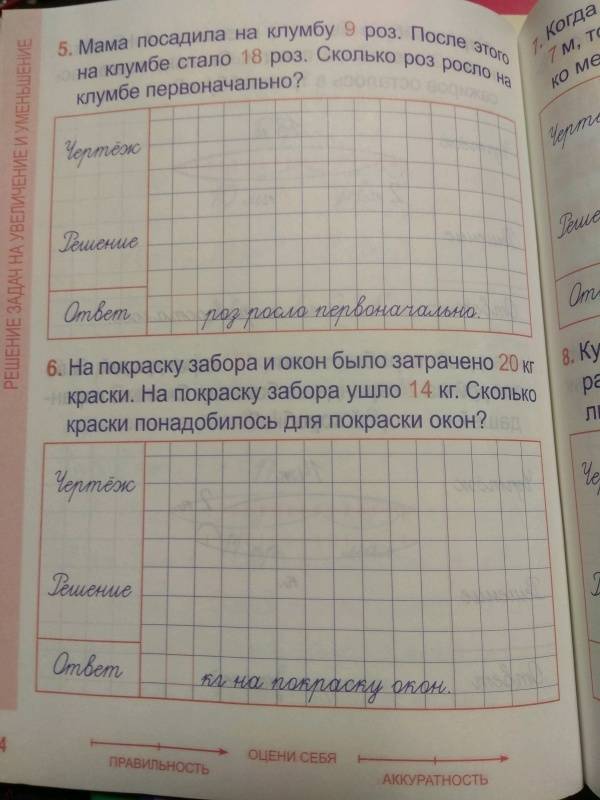 РЕШЕНИЕ ЗАДАЧ НА УВЕЛИЧЕНИЕ И УМЕНЬШЕНИЕ
5. Мама посадила на клумбу 9 роз. После этого
на клумбе стало 18 роз. Сколько роз росло на
клумбе первоначально?
Чертёж
Решение
Ответ
роз росло первоначально.
6. На покраску забора и окон было затрачено 20 кг
краски. На покраску забора ушло 14 кг. Сколько
краски понадобилось для покраски окон?
Чертёж
Решение
Ответ
кг на покраску окон.
4
ПРАВИЛЬНОСТЬ
ОЦЕНИ СЕБЯ
АККУРАТНОСТЬ
Когда
7 м,
8.